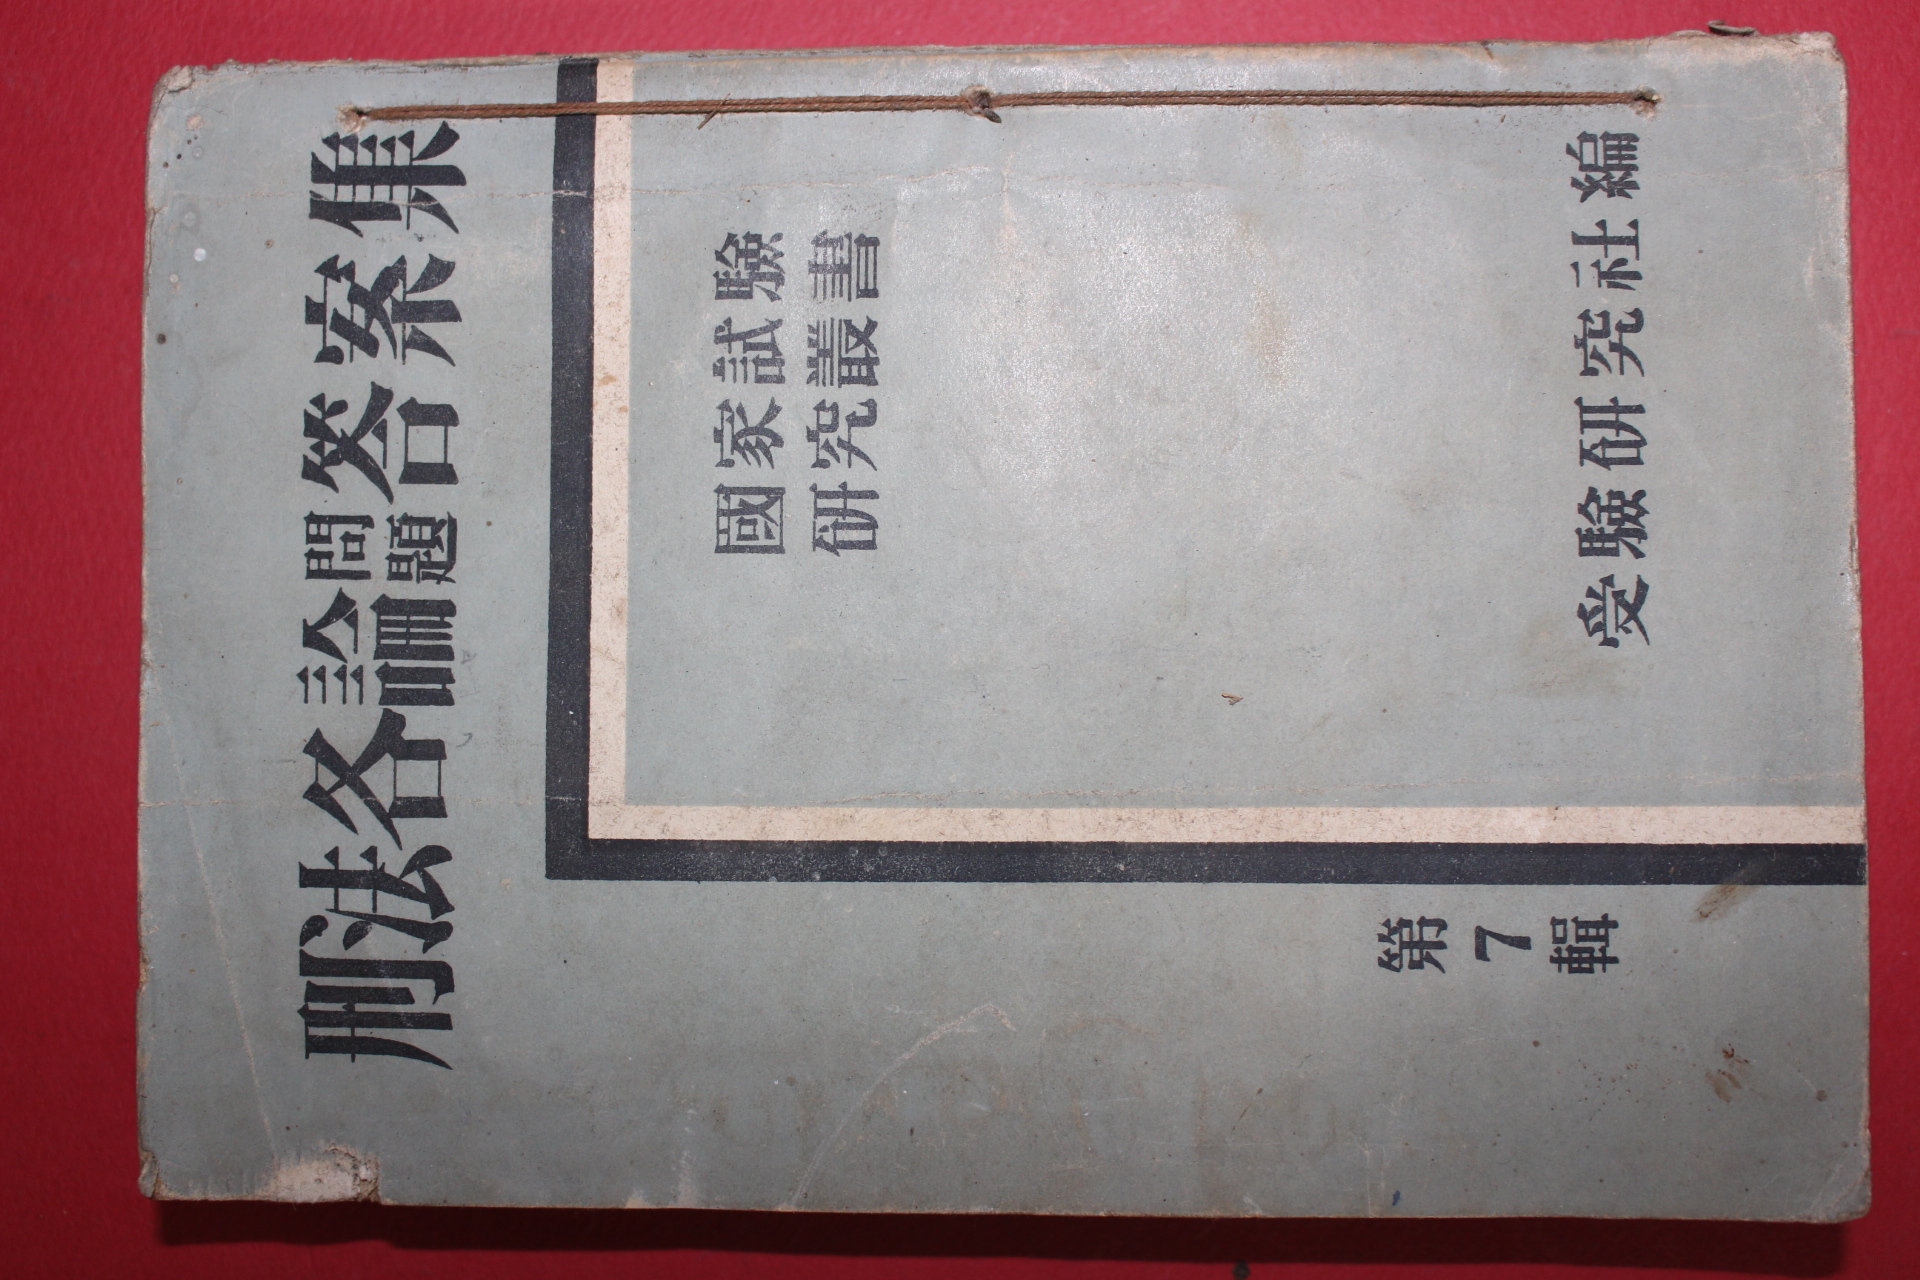 刑法各論問題答案集
國家試驗
研究叢書
受驗研究社編
第7輯